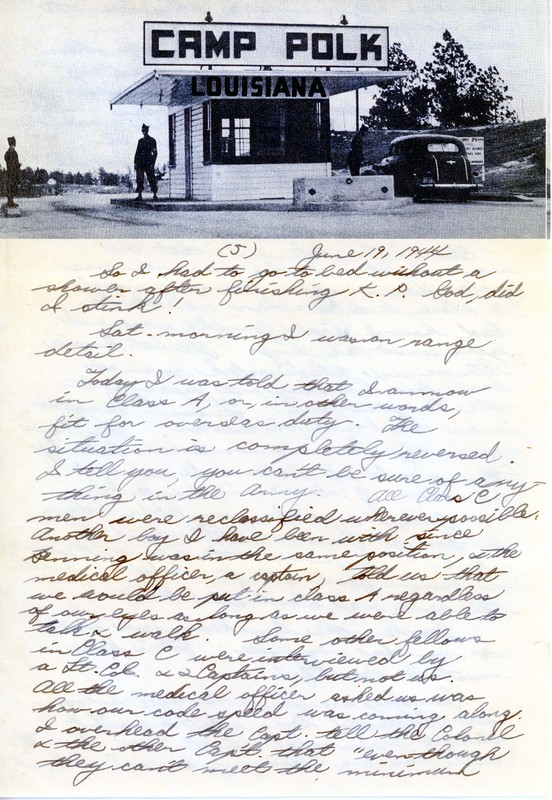 CAMP POLK
LOUISIANA
(5) June 19, 1944
So I had to go to bed without a
shower after finishing K. P. God, did
I stink!
Sat. morning I was on range
detail.
Today I was told that I am now
in Class A, or, in other words,
fit for overseas duty. The
situation is completely reversed.
I tell you, you can't be sure of any-
thing in the Army. All Class C
men were reclassified wherever possible.
Another boy I have been with since
Benning was in the same position, & the
medical officer, a captain, told us that
we would be put in class A regardless
of our eyes as long as we were able to
talk & walk. Some other fellows
in Class C were interviewed by
a Lt. Col. & 2 Captains, but not us.
All the medical officer asked us was
how our code speed was coming along.
I overhead the Capt. tell the Colonel
& the other Capt. that "even though
they can't meet the minimum